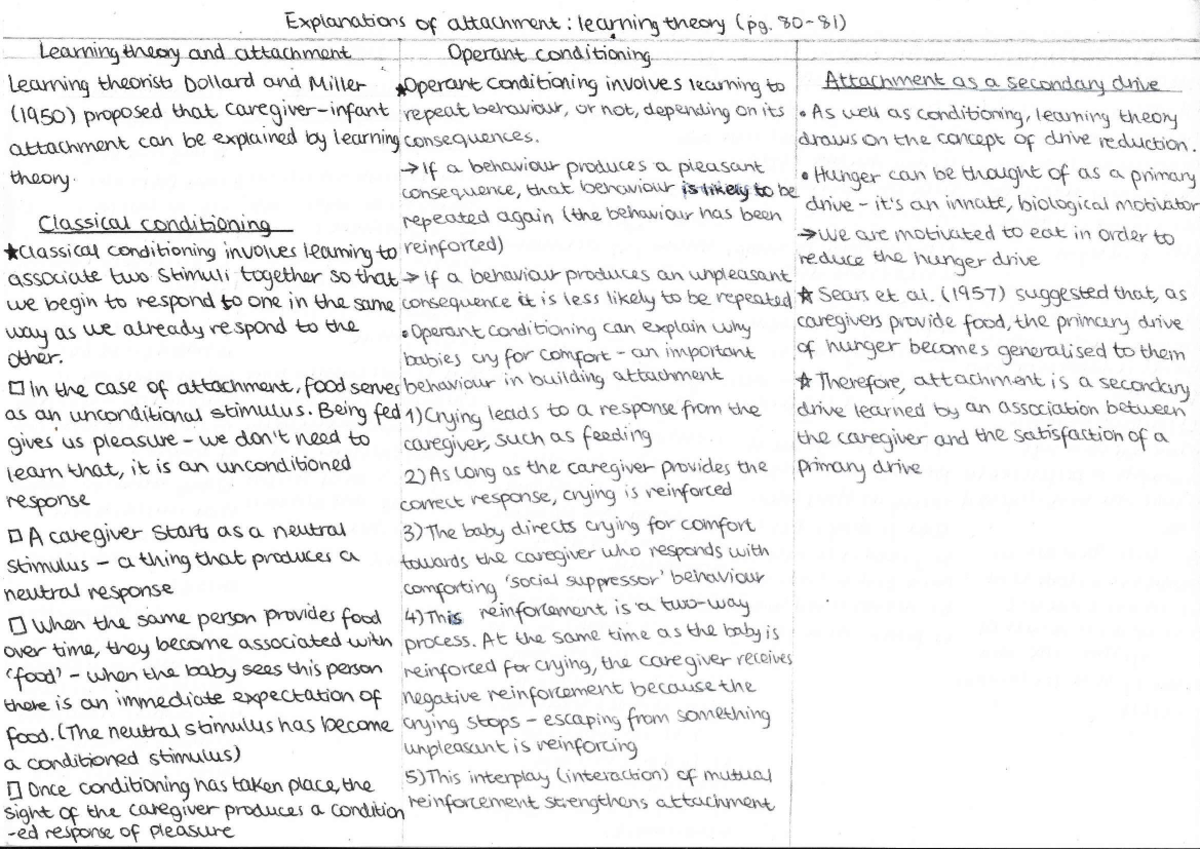 Explanations of attachment: learning theory (pg. 80-81)
Learning theory and attachment
Learning theorists Dollard and Miller
(1950) proposed that caregiver-infant
attachment can be explained by learning
theory.
Classical conditioning
★Classical conditioning involves learning to
associate two stimuli together so that
we begin to respond to one in the same
way as we already respond to the
other.
□ In the case of attachment, food serves
as an unconditional stimulus. Being fed
gives us pleasure - we don't need to
learn that, it is an unconditioned
response
□ A caregiver starts as a neutral
stimulus - a thing that produces a
neutral response
□ When the same person provides food
over time, they become associated with
'food' - when the baby sees this person
there is an immediate expectation of
food. (The neutral stimulus has become
a conditioned stimulus)
□ Once conditioning has taken place, the
sight of the caregiver produces a condition
-ed response of pleasure
Operant conditioning
★Operant conditioning involves learning to
repeat behaviour, or not, depending on its
consequences.
→ If a behaviour produces a pleasant
consequence, that behaviour is likely to be
repeated again (the behaviour has been
reinforced)
→ if a behaviour produces an unpleasant
consequence it is less likely to be repeated
•Operant conditioning can explain why
babies cry for comfort - an important
behaviour in building attachment
1) Crying leads to a response from the
caregiver, such as feeding
2) As long as the caregiver provides the
correct response, crying is reinforced
3) The baby directs crying for comfort
towards the caregiver who responds with
comforting 'social suppressor' behaviour
4) This reinforcement is a two-way
process. At the same time as the baby is
reinforced for crying, the caregiver receives
negative reinforcement because the
crying stops - escaping from something
unpleasant is reinforcing
5) This interplay (interaction) of mutual
reinforcement strengthens attachment
Attachment as a secondary drive
• As well as conditioning, learning theory
draws on the concept of drive reduction.
• Hunger can be thought of as a primary
drive - it's an innate, biological motivator
→ we are motivated to eat in order to
reduce the hunger drive
★ Sears et al. (1957) suggested that, as
caregivers provide food, the primary drive
of hunger becomes generalised to them
★ Therefore, attachment is a secondary
drive learned by an association between
the caregiver and the satisfaction of a
primary drive